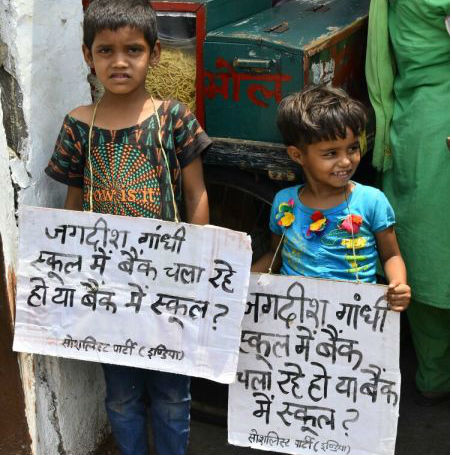 भोल
जगदीश गांधी
स्कूल में बैंक चला रहे
हो या बैंक में स्कूल?
सोशलिस्ट पार्टी (इण्डिया)
जगदीश गांधी
स्कूल में बैंक
चला रहे हो या बैंक
में स्कूल?
सोशलिस्ट पार्टी (इण्डिया)